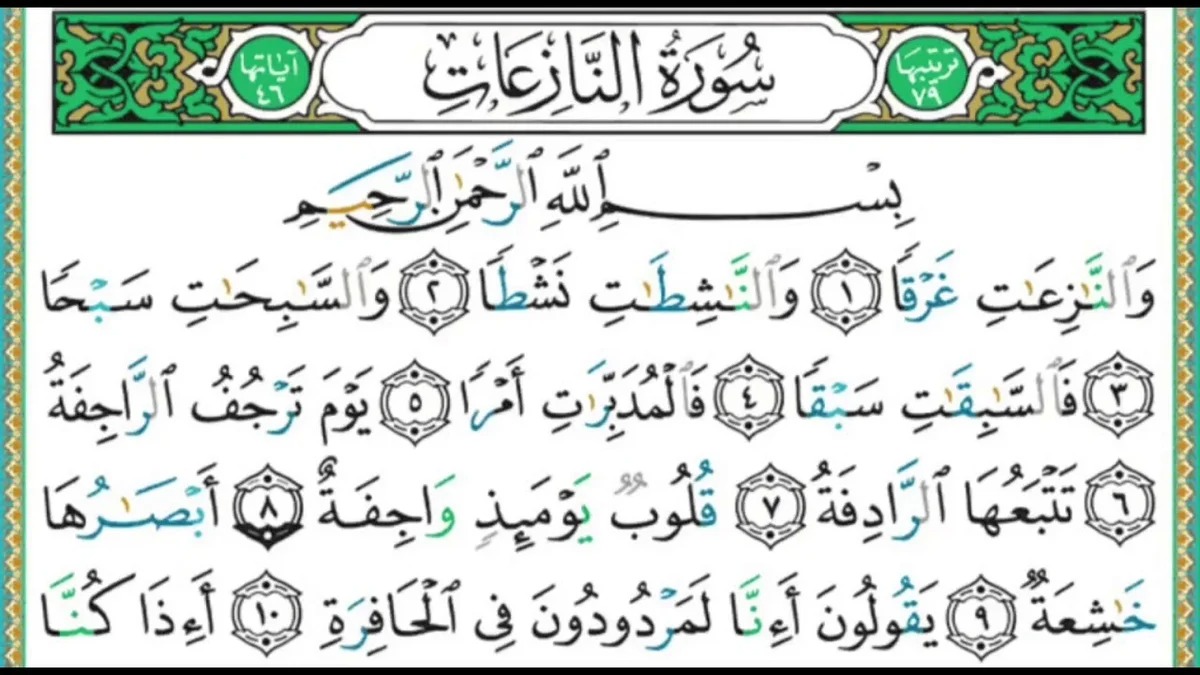 ترتيبها ٧٩
سُورَةُ النَّازِعَاتِ
آيَاتها ٤٦
بِسْمِ ٱللَّهِ ٱلرَّحْمَٰنِ ٱلرَّحِيمِ
وَٱلنَّٰزِعَٰتِ غَرْقًا ١ وَٱلنَّٰشِطَٰتِ نَشْطًا ٢ وَٱلسَّٰبِحَٰتِ سَبْحًا
٣ فَٱلسَّٰبِقَٰتِ سَبْقًا ٤ فَٱلْمُدَبِّرَٰتِ أَمْرًا ٥ يَوْمَ تَرْجُفُ ٱلرَّاجِفَةُ
٦ تَتْبَعُهَا ٱلرَّادِفَةُ ٧ قُلُوبٌ يَوْمَئِذٍ وَاجِفَةٌ ٨ أَبْصَٰرُهَا
خَٰشِعَةٌ ٩ يَقُولُونَ أَءِنَّا لَمَرْدُودُونَ فِى ٱلْحَافِرَةِ ١٠ أَءِذَا كُنَّا